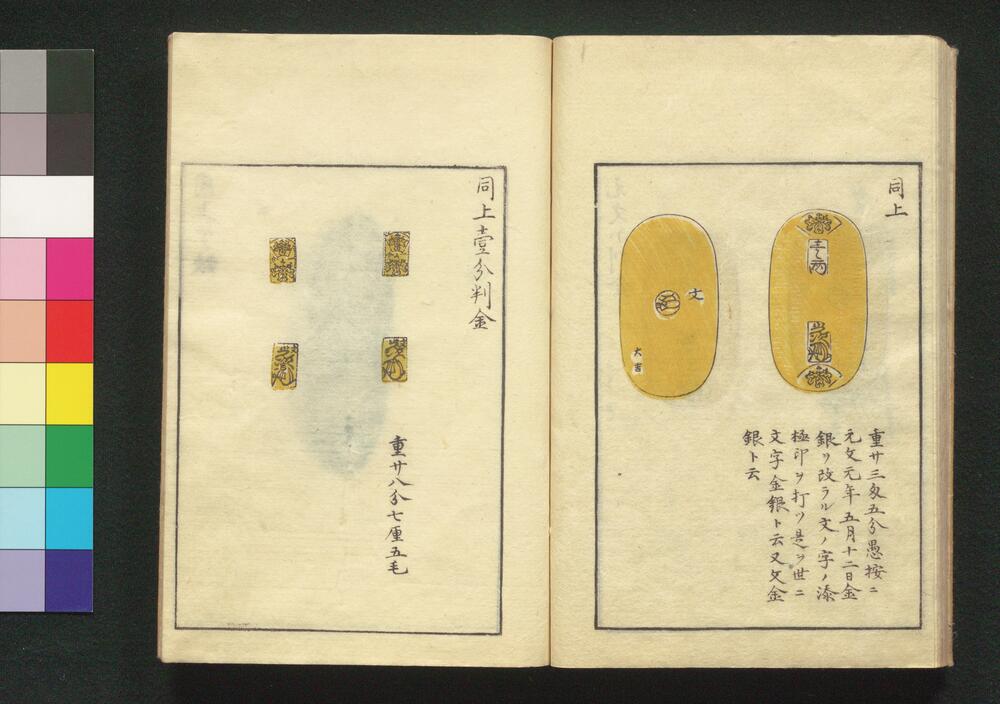 同上
壹两
文
大吉
重廿三匁五分愚按ニ
元文元年五月十二日金
銀ヲ改ラル文ノ字ノ
極印ヲ打ツ是ヲ世ニ
文字金銀ト云又文金
銀ト云
同上壹分判金
重廿八分七厘五毛